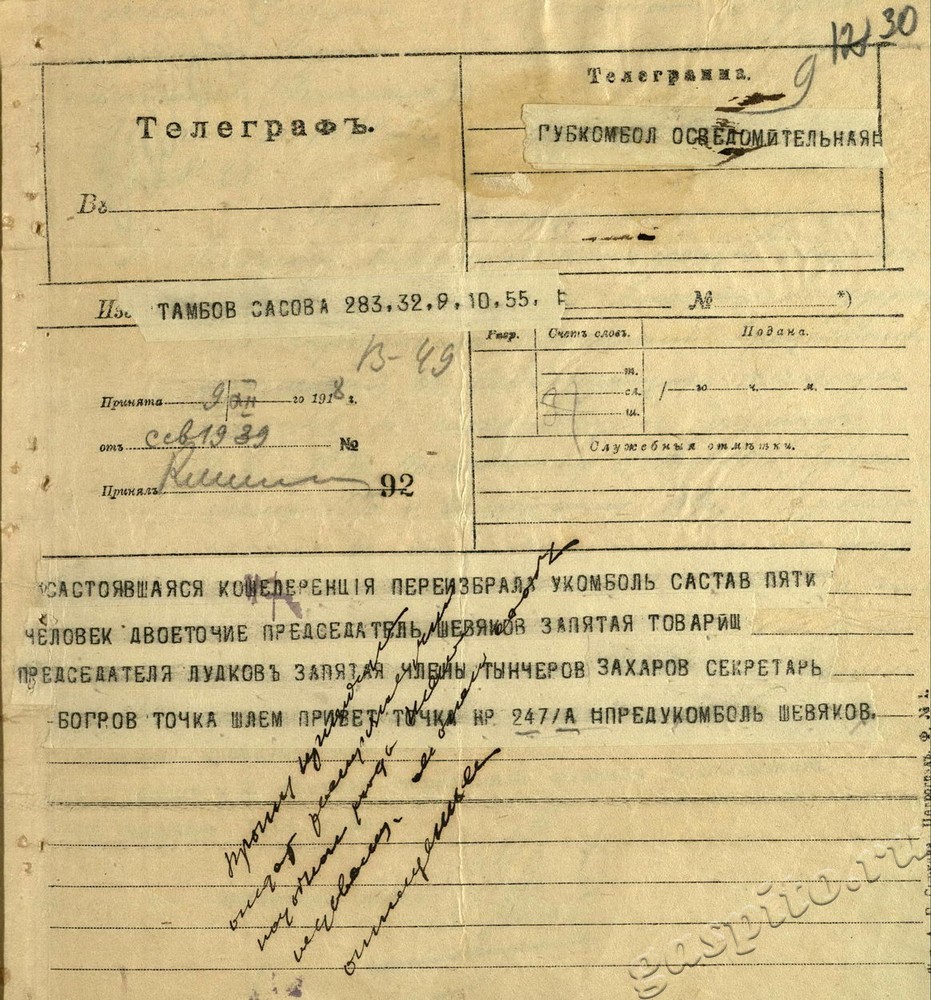 30
Телеграмма.
9
Телеграфъ.
ГУБКОМБОЛ ОСВЕДОМИТЕЛЬНАЯН
Въ
Изъ ТАМБОВ САСОВА 283,32,9,10,55, №
*)
В-49
Разр. Счетъ словъ. Подана.
т.
сл.
ш.
го ч. м.
Принята 9/XII го 1918 г.
отъ 1939 №
Служебныя отмѣтки.
Принялъ 92
САСТОЯВШАЯСЯ КОШЕДЕРЕНЦІЯ ПЕРЕИЗБРАЛА УКОМБОЛЬ САСТАВ ПЯТИ
ЧЕЛОВЕК ДВОЕТОЧИЕ ПРЕДСЕДАТЕЛЬ ШЕВЯКОВ ЗАПЯТАЯ ТОВАРИЩ
ПРЕДСЕДАТЕЛЯ ЛУДКОВЪ ЗАПЯТАЯ ЧЛЕНЫ ТЫНЧЕРОВ ЗАХАРОВ СЕКРЕТАРЬ
БОГРОВ ТОЧКА ШЛЕМ ПРИВЕТ ТОЧКА НР 247/А НПРЕДУКОМБОЛЬ ШЕВЯКОВ.
Прошу
gaspito.ru